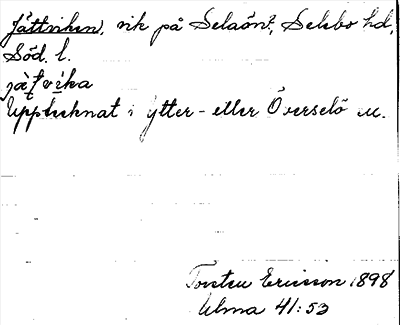 Jättviken, vik på Selaönt, Selebo hd,
Söd. l.
jä̀tvika
Upptecknat i ytter- eller Överselö sn.
Torsten Ericsson 1898
Ulma 41:53